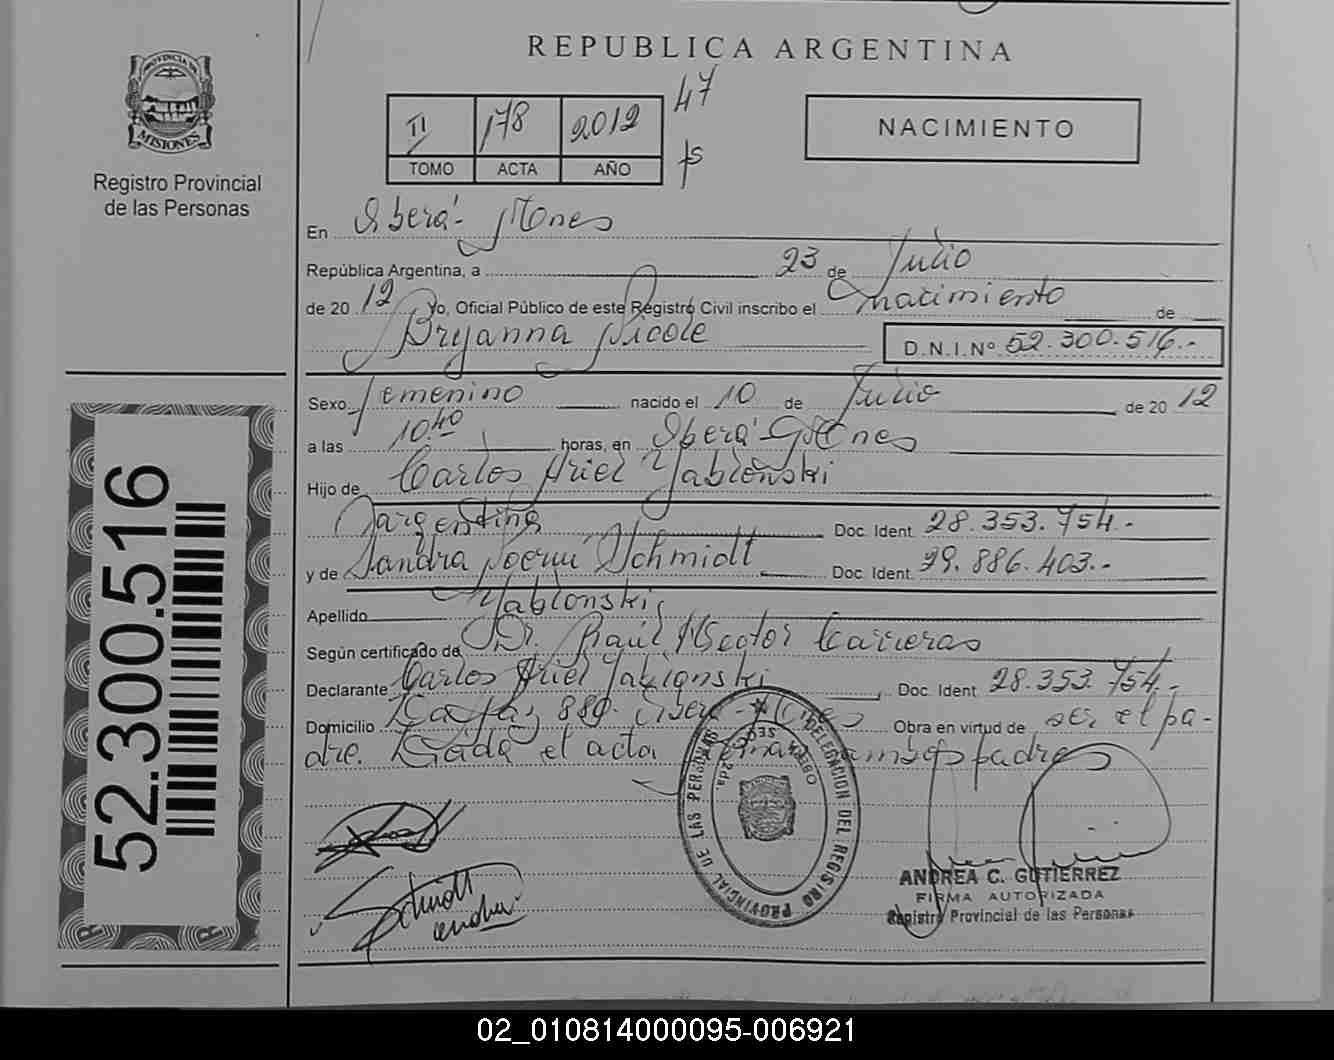 REPUBLICA ARGENTINA
PROVINCIA DE
MISIONES
Registro Provincial
de las Personas
II 178 2012 47
TOMO ACTA AÑO
NACIMIENTO
En Oberá - Mnes
República Argentina, a 23 de Julio
de 20 12 Yo, Oficial Público de este Registro Civil inscribo el nacimiento de
Bryanna Nicole D.N.I.Nº 52.300.516.-
Sexo femenino nacido el 10 de Julio de 20 12
a las 10.40 horas, en Oberá - Mnes
Hijo de Carlos Ariel Yablonski
argentina Doc. Ident. 28.353.754.-
y de Sandra Noemí Schmidt Doc. Ident. 29.886.403.-
Apellido Yablonski
Según certificado de Dr. Raúl Hector Carreras
Declarante Carlos Ariel Yablonski Doc. Ident 28.353.754.-
Domicilio 880. Oberá - Mnes Obra en virtud de ser el pa-
dre. Leída el acta firman ambos padres
52.300.516
DELEGACION DEL REGISTRO PROVINCIAL DE LAS PERSONAS
OBERA SECC. 2da
Schmidt
ANDREA C. GUTIERREZ
FIRMA AUTORIZADA
Registro Provincial de las Personas
02_010814000095-006921